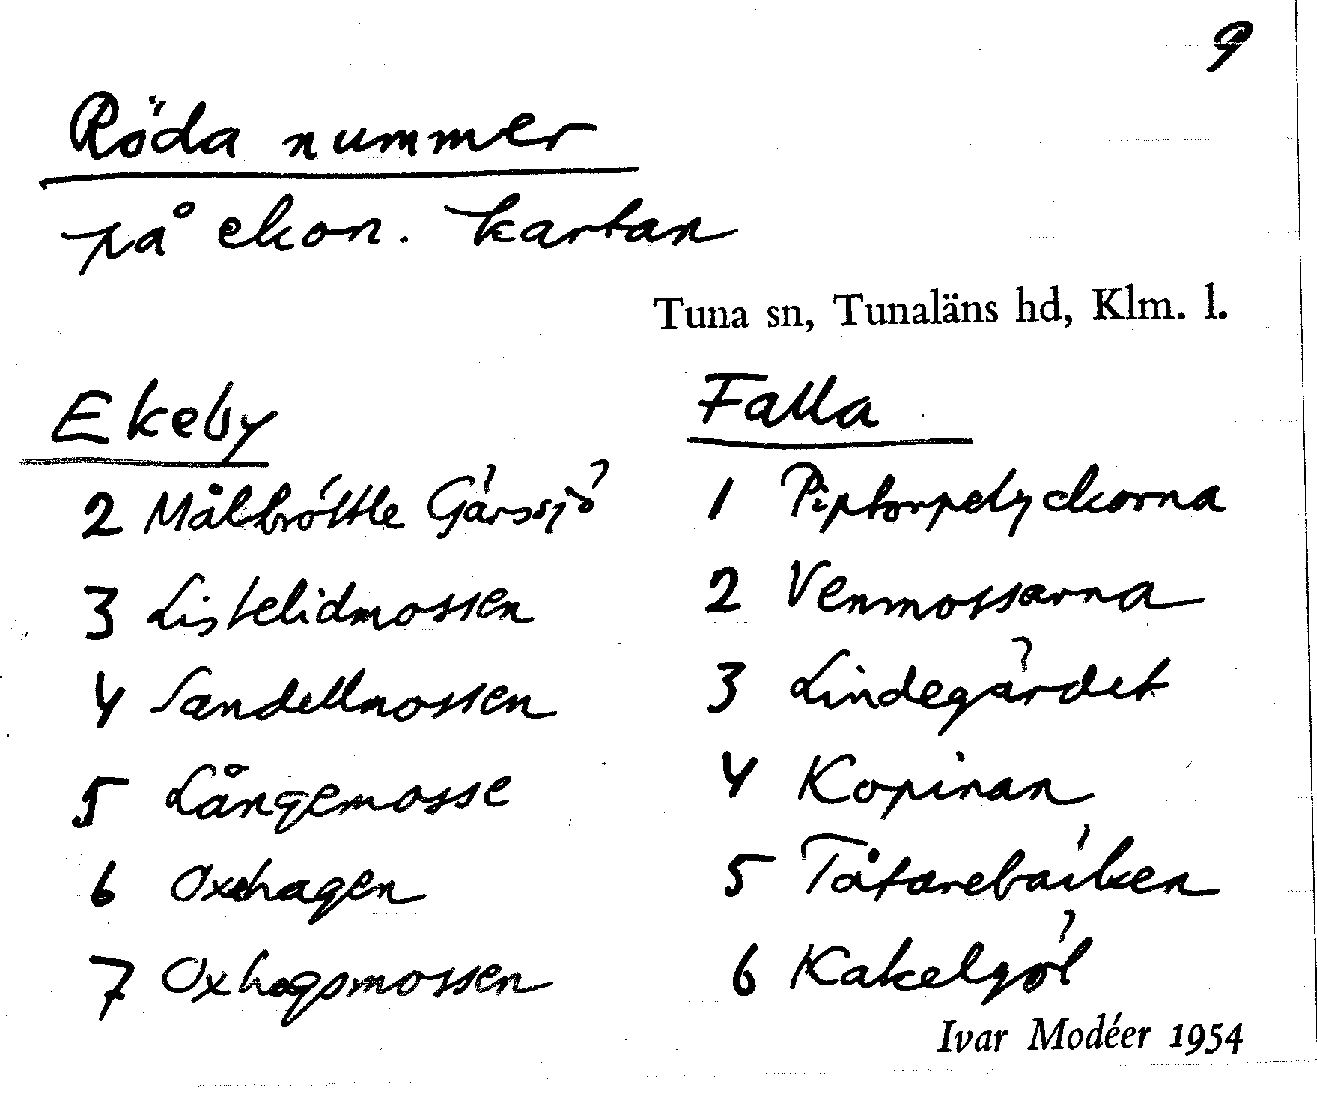 9
Röda nummer
på ekon. kartan
Tuna sn, Tunaläns hd, Klm. l.
Ekeby
2 Målbröttle Gärssjö
3 Listelidmossen
4 Sandellmossen
5 Långemosse
6 Oxhagen
7 Oxhagsmossen
Falla
1 Piptorpelyckorna
2 Venmossarna
3 Lindegärdet
4 Kopinan
5 Tåtarebäcken
6 Kakelgöl
Ivar Modéer 1954